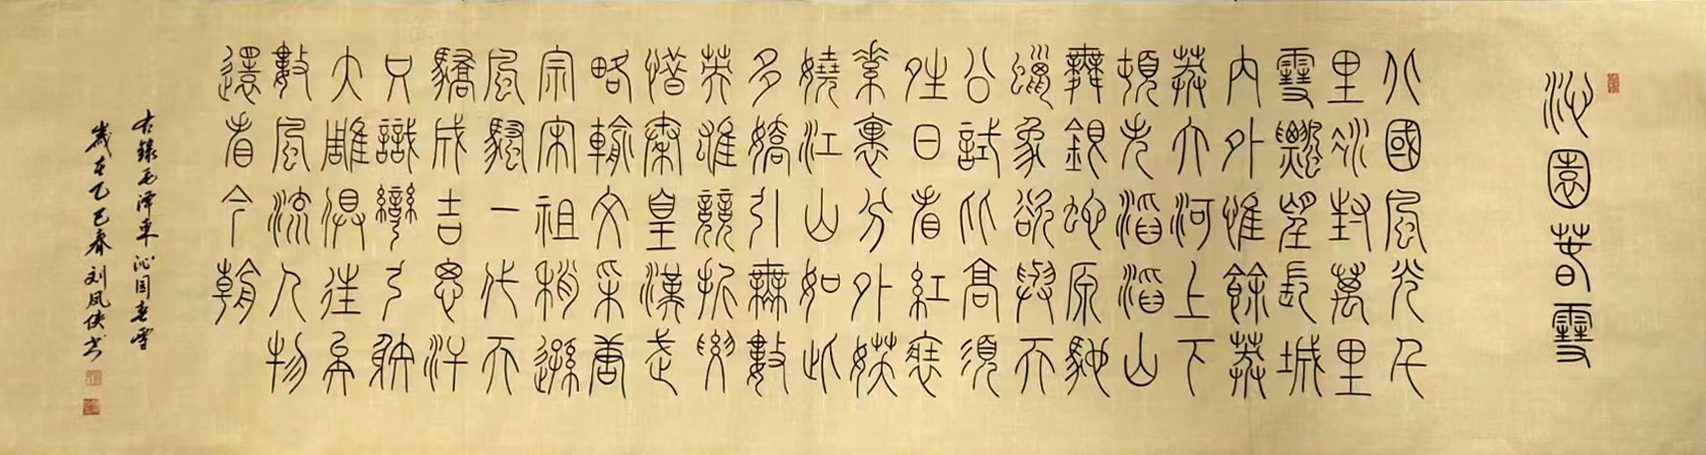 沁園春雪
北國風光千
里冰封萬里
雪飄望長城
内外惟餘莽
莽大河上下
頓失滔滔山
舞銀蛇原馳
蠟象欲與天
公試比高須
晴日看紅裝
素裹分外妖
嬈江山如此
多嬌引無數
英雄競折腰
惜秦皇漢武
略輸文采唐
宗宋祖稍遜
風騷一代天
驕成吉思汗
只識彎弓射
大雕俱往矣
數風流人物
還看今朝
右錄毛泽东沁园春雪
歲在乙巳春刘凤侠书